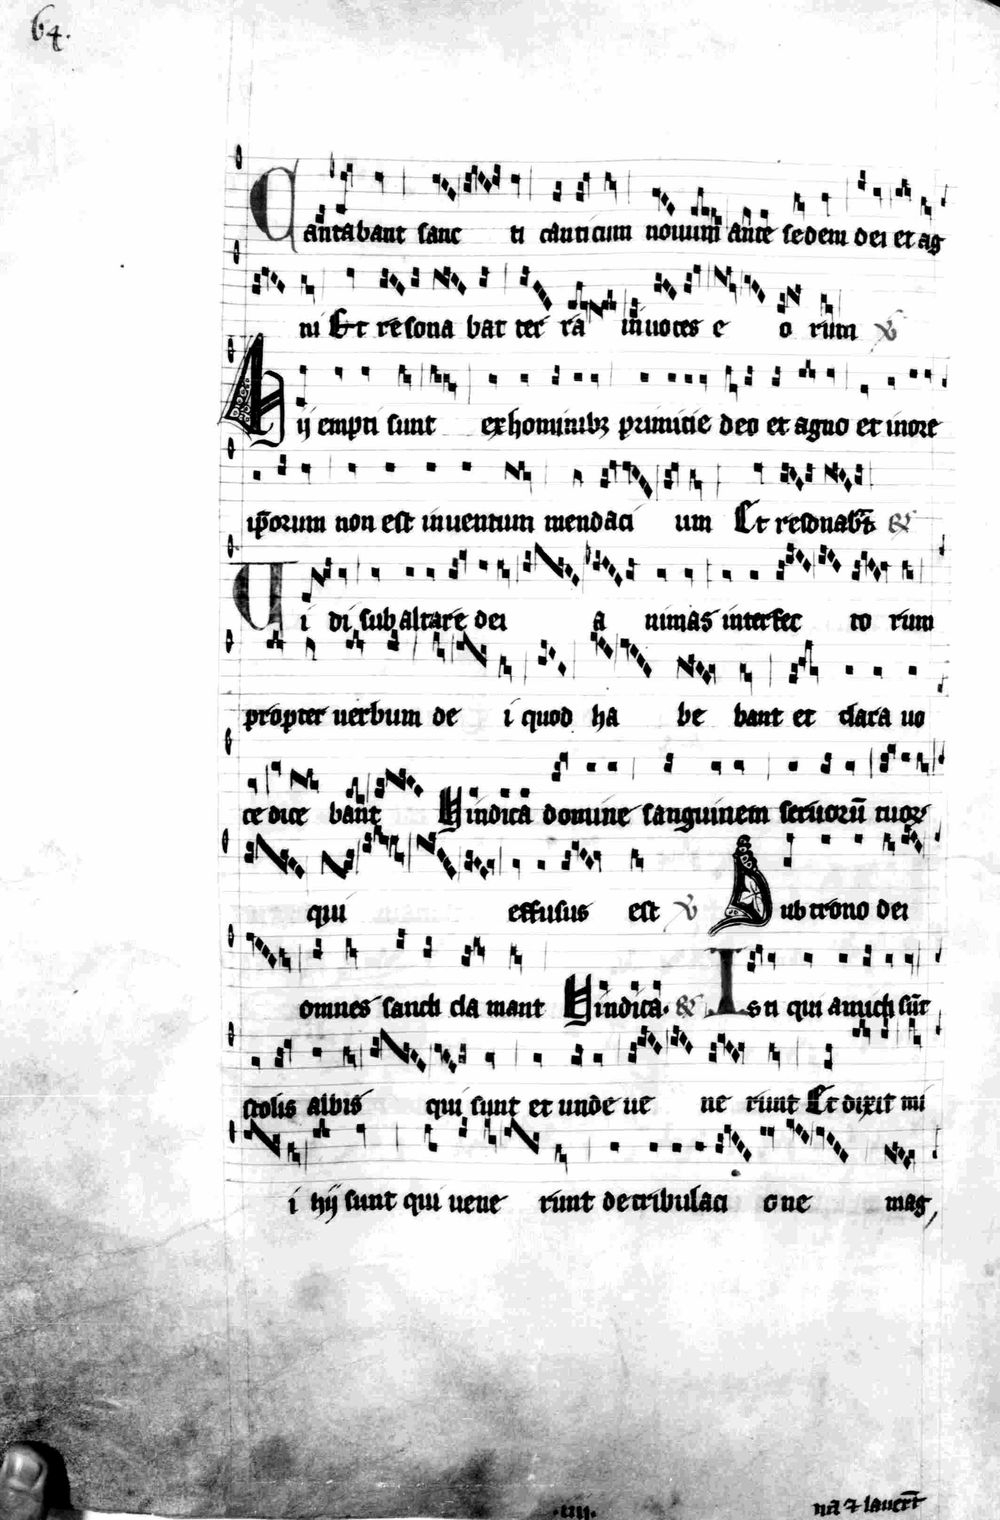 64.
Cantabant sanc ti canticum nouum ante sedem dei et ag
ni Et resona bat ter ra in uoces e o rum ℣
Hij empti sunt ex hominibꝫ primicie deo et agno et in ore
ip̄orum non est inuentum mendaci um Et resonab̄t &
Vi di sub altare dei a nimas interfec to rum
propter uerbum de i quod ha be bant et clara uo
ce dice bant Vindica domine sanguinem seruorū tuoꝝ
qui effusus est ℣ Sub trono dei
omnes sancti cla mant Vindica. & Is ti qui amicti sūt
stolis albis qui sunt et unde ue ne runt Et dixit mi
i hij sunt qui uene runt de tribulaci one mag
.iiii.
na ⁊ lauer̄t